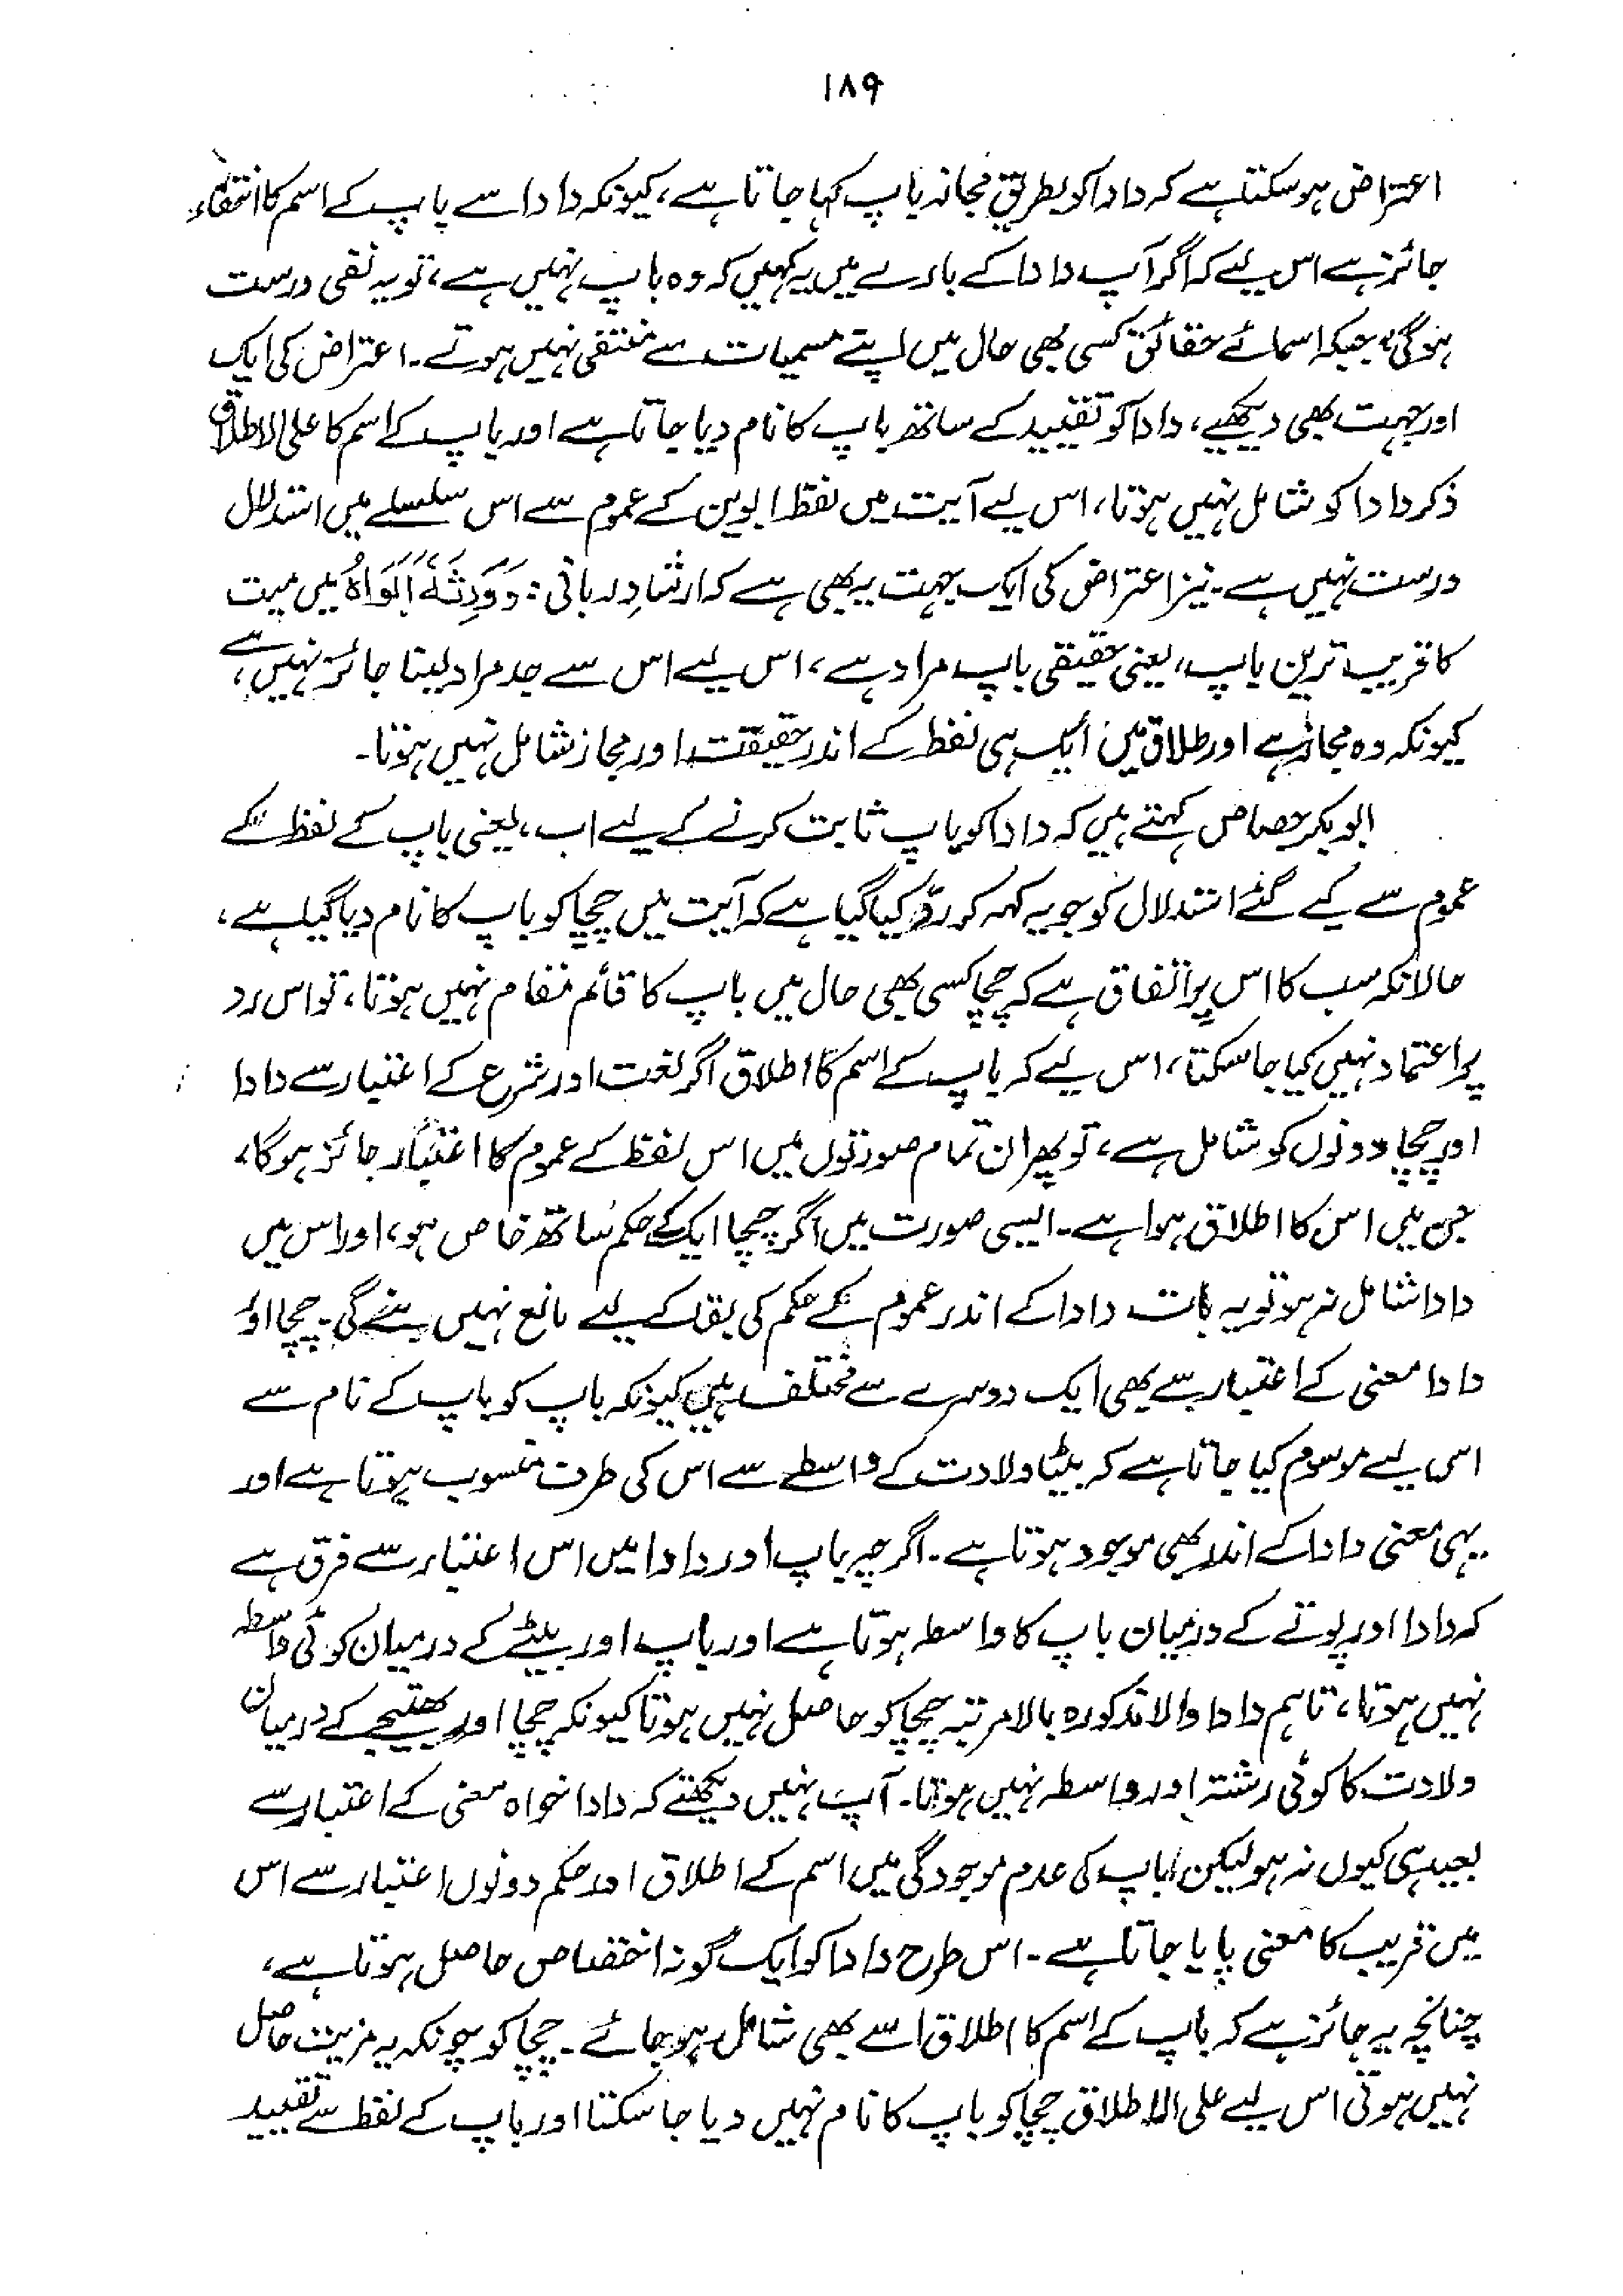 ۱۸۹
اعتراض ہو سکتا ہے کہ دادا کو بطریقِ مجاز باپ کہا جاتا ہے، کیونکہ دادا سے باپ کے اسم کا انتفاء
جائز ہے اس لیے کہ اگر آپ دادا کے بارے میں یہ کہیں کہ وہ باپ نہیں ہے، تو یہ نفی درست
ہوگی، جبکہ اسمائے حقائق کسی بھی حال میں اپنے مسمیات سے منتفی نہیں ہوتے۔ اعتراض کی ایک
اور جہت بھی دیکھیے، دادا کو تقیید کے ساتھ باپ کا نام دیا جاتا ہے اور باپ کے اسم کا علی الاطلاق
ذکر دادا کو شامل نہیں ہوتا، اس لیے آیت میں لفظ ابوین کے عموم سے اس سلسلے میں استدلال
درست نہیں ہے۔ نیز اعتراض کی ایک جہت یہ بھی ہے کہ ارشادِ ربانی: وَوَرِثَهٗٓ اَبَوَاهُ میں میت
کا قریب ترین باپ، یعنی حقیقی باپ مراد ہے، اس لیے اس سے جد مراد لینا جائز نہیں ہے،
کیونکہ وہ مجاز ہے اور طلاق میں ایک ہی لفظ کے اندر حقیقت اور مجاز شامل نہیں ہوتا۔
ابوبکر جصاص کہتے ہیں کہ دادا کو باپ ثابت کرنے کے لیے اب، یعنی باپ کے لفظ کے
عموم سے کیے گئے استدلال کو جو یہ کہہ کر ردّ کیا گیا ہے کہ آیت میں چچا کو باپ کا نام دیا گیا ہے،
حالانکہ سب کا اس پر اتفاق ہے کہ چچا کسی بھی حال میں باپ کا قائم مقام نہیں ہوتا، تو اس رد
پر اعتماد نہیں کیا جا سکتا، اس لیے کہ باپ کے اسم کا اطلاق اگر لغت اور شرع کے اعتبار سے دادا
اور چچا دونوں کو شامل ہے، تو پھر ان تمام صورتوں میں اس لفظ کے عموم کا اعتبار جائز ہوگا،
جن میں اس کا اطلاق ہوا ہے۔ ایسی صورت میں اگر چچا ایک کے حکم ساتھ خاص ہو، اور اس میں
دادا شامل نہ ہو تو یہ بات دادا کے اندر عموم کے حکم کی بقا کے لیے مانع نہیں بنے گی۔ چچا اور
دادا معنی کے اعتبار سے بھی ایک دوسرے سے مختلف ہیں کیونکہ باپ کو باپ کے نام سے
اسی لیے موسوم کیا جاتا ہے کہ بیٹا ولادت کے واسطے سے اس کی طرف منسوب ہوتا ہے اور
یہی معنی دادا کے اندر بھی موجود ہوتا ہے۔ اگرچہ باپ اور دادا میں اس اعتبار سے فرق ہے
کہ دادا اور پوتے کے درمیان باپ کا واسطہ ہوتا ہے اور باپ اور بیٹے کے درمیان کوئی واسطہ
نہیں ہوتا، تاہم دادا والا مذکورہ بالا مرتبہ چچا کو حاصل نہیں ہوتا کیونکہ چچا اور بھتیجے کے درمیان
ولادت کا کوئی رشتہ اور واسطہ نہیں ہوتا۔ آپ نہیں دیکھتے کہ دادا خواہ معنی کے اعتبار سے
بعید ہی کیوں نہ ہو لیکن باپ کی عدم موجودگی میں اسم کے اطلاق اور حکم دونوں اعتبار سے اس
میں قریب کا معنی پایا جاتا ہے۔ اس طرح دادا کو ایک گونہ اختصاص حاصل ہوتا ہے،
چنانچہ یہ جائز ہے کہ باپ کے اسم کا اطلاق اسے بھی شامل ہو جائے۔ چچا کو چونکہ یہ مزیت حاصل
نہیں ہوتی اس لیے علی الاطلاق چچا کو باپ کا نام نہیں دیا جا سکتا اور باپ کے لفظ سے تقیید